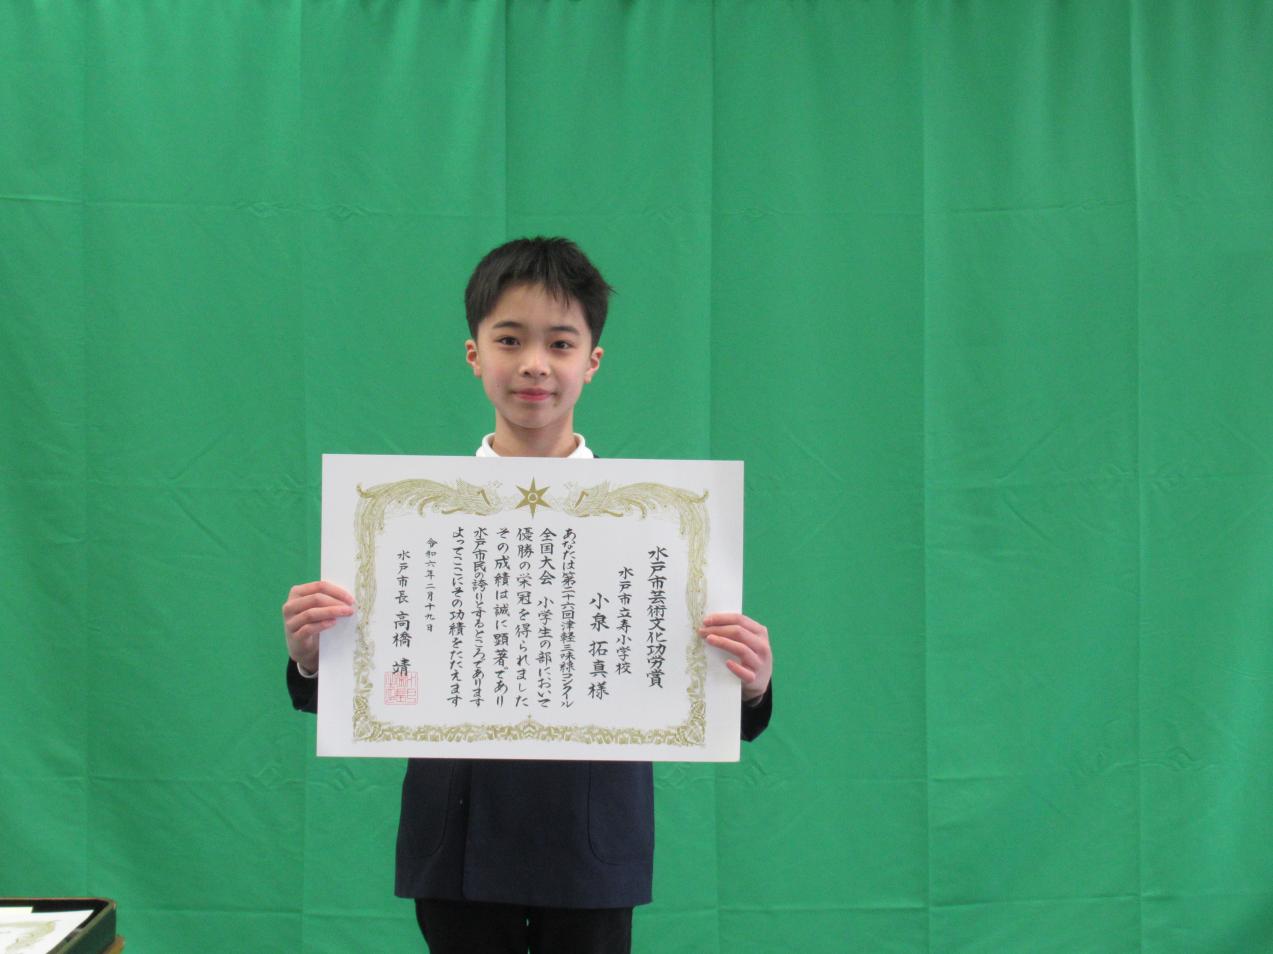 水戸市芸術文化功労賞
水戸市立寿小学校
小泉拓真様
あなたは第二十六回津軽三味線コンクール
全国大会 小学生の部において
優勝の栄冠を得られました
その成績は誠に顕著であり
水戸市民の誇りとするところであります
よってここにその功績をたたえます
令和六年二月十九日
水戸市長 高橋 靖